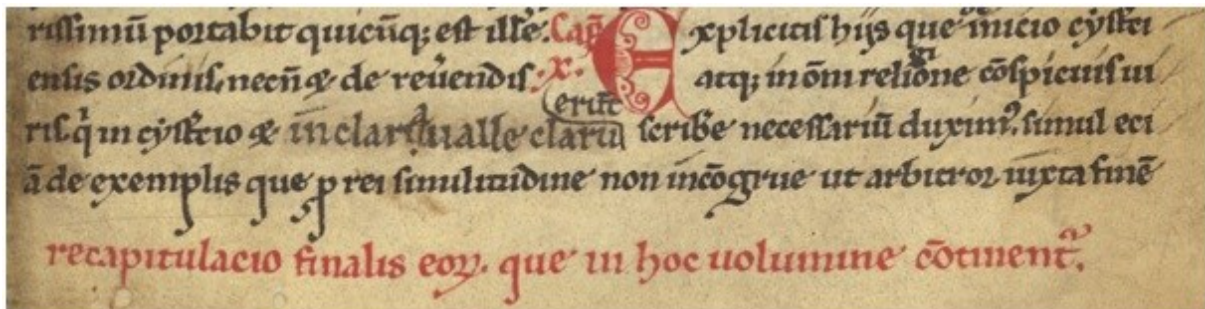 rissimū portabit quicūq; est ille. Cap̄ Explicitis hijs que ī inicio cysterci
ensis ordinis, necn̄ & de reūendis .x. atq; in om̄i religione cōspicuis ui
ris, qͥ in cysťcio & in claraualle clarueruꝛ̄t scribe᷒ necessariū duximꝰ. simul eci
ā de exemplis que ꝓ rei similitudine non incōgrue ut arbitror iuxta finē
recapitulacio finalis eoꝝ. que in hoc uolumine cōtinentᷣ.